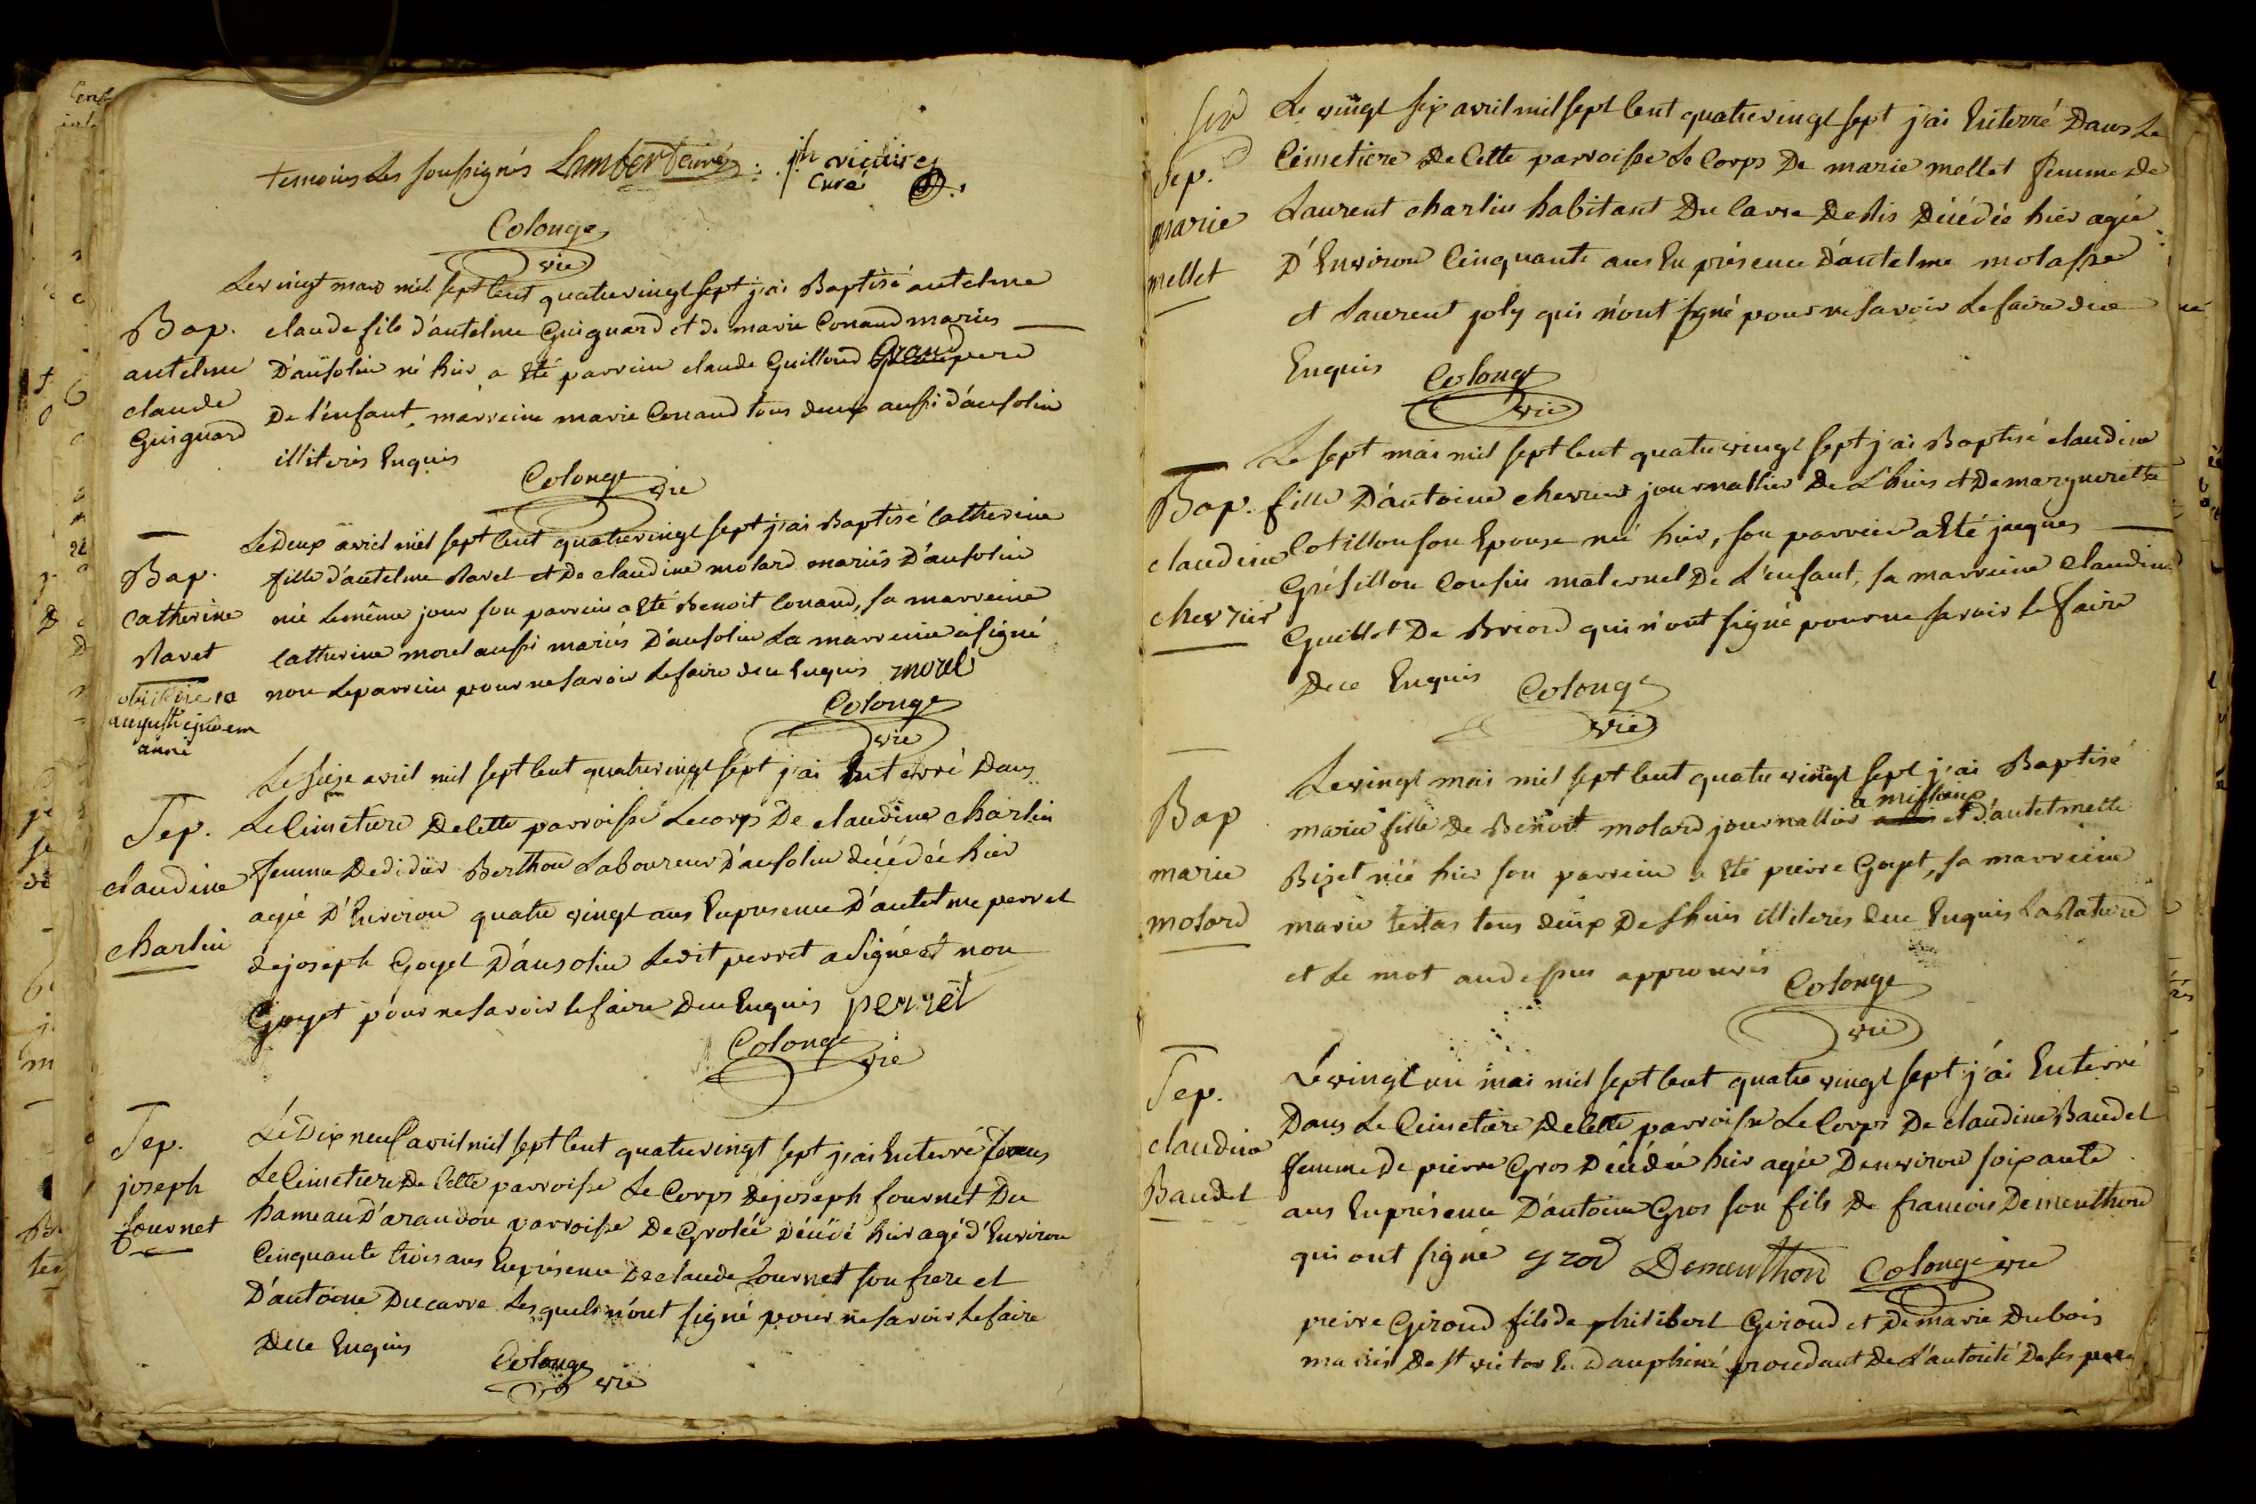 temoins les soussignés Lambert curé jh vicaire
curé
Colonge
vic
Le vingt mars mil sept cent quatrevingt sept j'ai Baptisé antelme
Bap. claude fils d'antelme Guignard et de marie Conand mariés
antelme D'ansolin né hier a Eté parrein claude Guilloud Grand pere
claude De l'enfant, marreine marie Conand tous deux aussi d'ansolin
Guignard illiterés Enquis
Colonge vic
Le Deux avril mil sept cent quatrevingt sept j'ai Baptisé Catherine
Bap. fille d'antelme Ravet et De claudine molard mariés D'ansolin
Catherine née Le même jour son parrein a Eté Benoit Conand, sa marreine
Ravet Catherine morel aussi mariés D'ansolin La marreine a signé
non Le parrein pour ne savoir Le faire de ce Enquis morel
obiit die 10
augusti ejusdem
anni
Colonge
vic
Le seize avril mil sept cent quatrevingt sept j'ai Enterré Dans
Sep. Le Cimetiere De Cette parroisse Le corps De claudine charlin
claudine femme De didier Berthon Laboureur D'ansolin décédée hier
agée D'Environ quatre vingt ans En presence D'antelme perret
charlin de joseph Goyet D'ansolin Ledit perret a Signé et non
Goyet pour ne savoir le faire De ce Enquis perret
Colonge
vic
Sep. Le Dix neuf avril mil sept cent quatrevingt sept j'ai Enterré Dans
joseph Le Cimetiere De Cette parroisse Le Corps De joseph fournet Du
fournet hameau D'arandon parroisse De Grolée décédé hier agé d'Environ
Cinquante trois ans En présence De claude fournet son frere et
D'antoine Ducarre Lesquels n'ont signé pour ne savoir Le faire
De ce Enquis
Colonge
vic
Le vingt six avril mil sept Cent quatrevingt sept j'ai Enterré Dans Le
Sep. Cimetiere De Cette parroisse Le Corps De marie mellet femme de
marie Laurent charlin habitant Du Carre De Lis Décédée hier agée
mellet D'Environ Cinquante ans En présence d'antelme molasse
et Laurent joly qui n'ont signé pour ne savoir Le faire de ce
Enquis Colonge
vic
Le sept mai mil sept cent quatrevingt sept j'ai Baptisé claudine
Bap. fille D'antoine chevrier journallier De L'huis et De marguerite
claudine Cotillon son Epouse née hier, son parrein a Eté jacques
chevrier Grésillon Cousin maternel De L'enfant, sa marreine Claudine
Guillot De Briord qui n'ont signé pour ne savoir le faire
De ce Enquis Colonge
vic
Le vingt mai mil sept cent quatre vingt sept j'ai Baptisé
a millieux
Bap marie fille De Benoit molard journallier et d'antelmette
marie Bizet née hier son parrein a Eté pierre Goyet, sa marreine
molard marie tertas tous deux De Lhuis illiterés de ce Enquis La Rature
et Le mot au dessus approuvés Colonge
vic
Sep. Le vingt un mai mil sept cent quatre vingt sept j'ai Enterré
claudine Dans Le Cimetiere De Cette parroisse Le Corps De claudine Baudet
Baudet femme De pierre Gros Décédée hier agée D'environ soixante
ans En présence D'antoine Gros son fils De francois Dementhon
qui ont signé gros Dementhon Colonge vic
pierre Giroud fils de philibert Giroud et De marie Dubois
mariés De st victor En Dauphiné procedant De L'autorité De ses pere